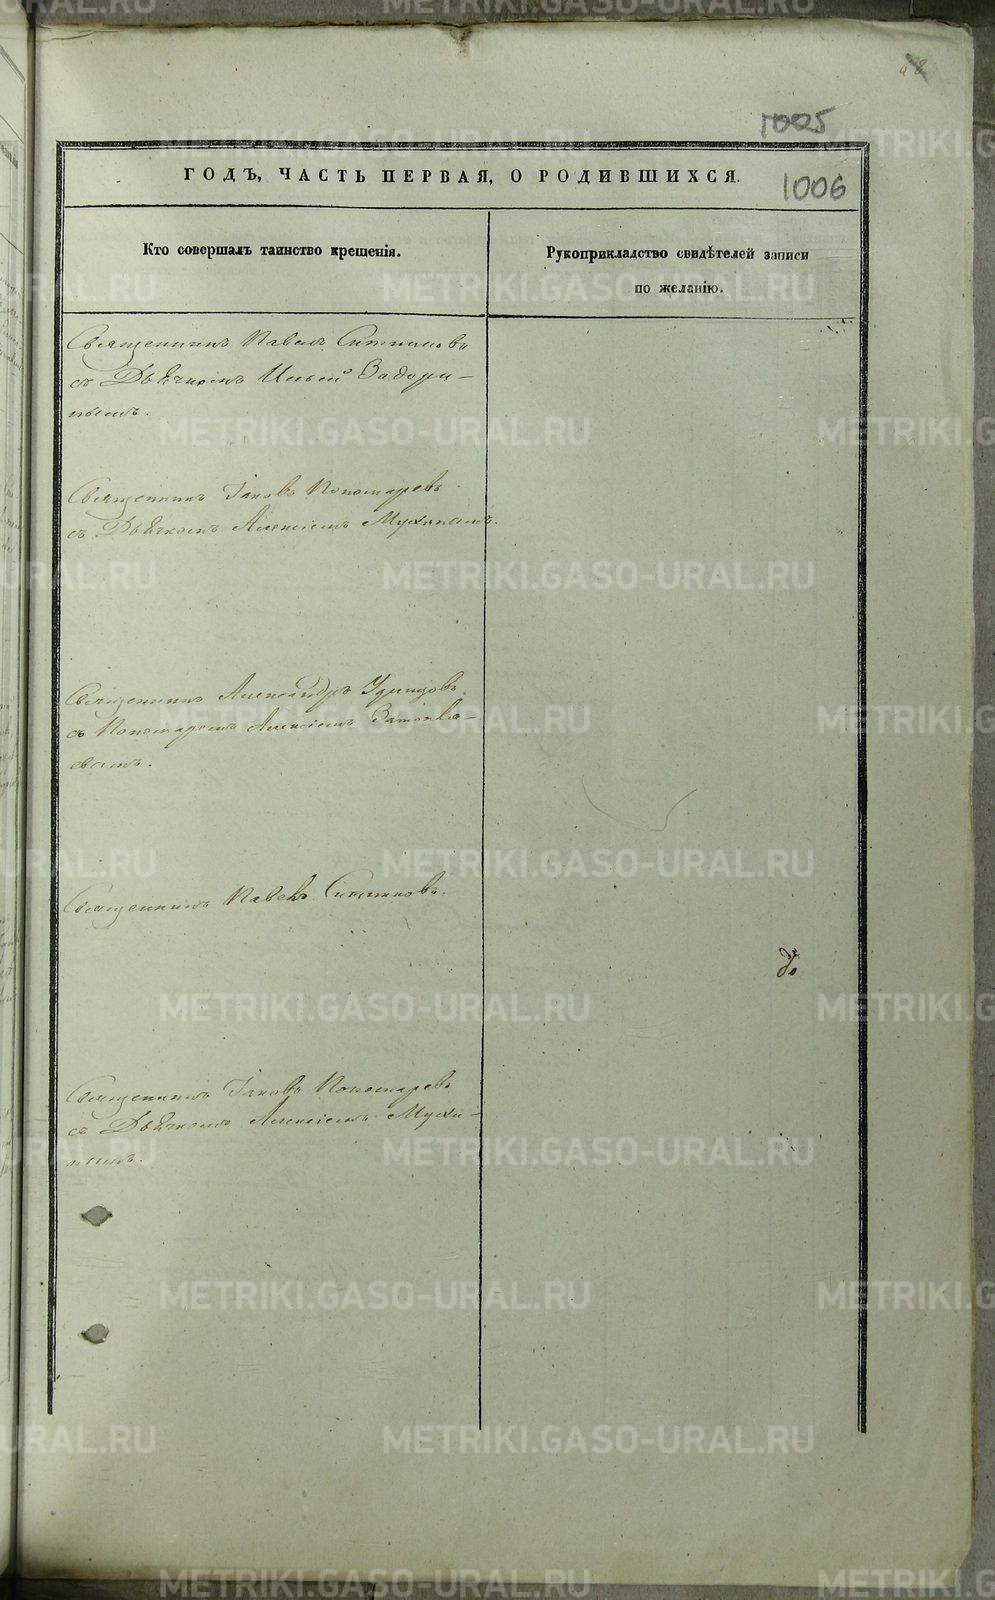 1005
ГОДЪ, ЧАСТЬ ПЕРВАЯ, О РОДИВШИХСЯ.
1006
Кто совершалъ таинство крещенія.
Рукоприкладство свидѣтелей записи
по желанію.
Священникъ Павелъ Ситниковъ
съ Дьячкомъ Ильей Задори-
нымъ.
Священникъ Іаковъ Пономаревъ
съ Дьячкомъ Алексіемъ Мухинымъ.
Священникъ Александръ Удинцовъ
съ Пономаремъ Алексіемъ
евымъ.
Священникъ Павелъ Ситниковъ.
Священникъ Іаковъ Пономаревъ
съ Дьячкомъ Алексіемъ Мухи-
нымъ.
METRIKI.GASO-URAL.RU